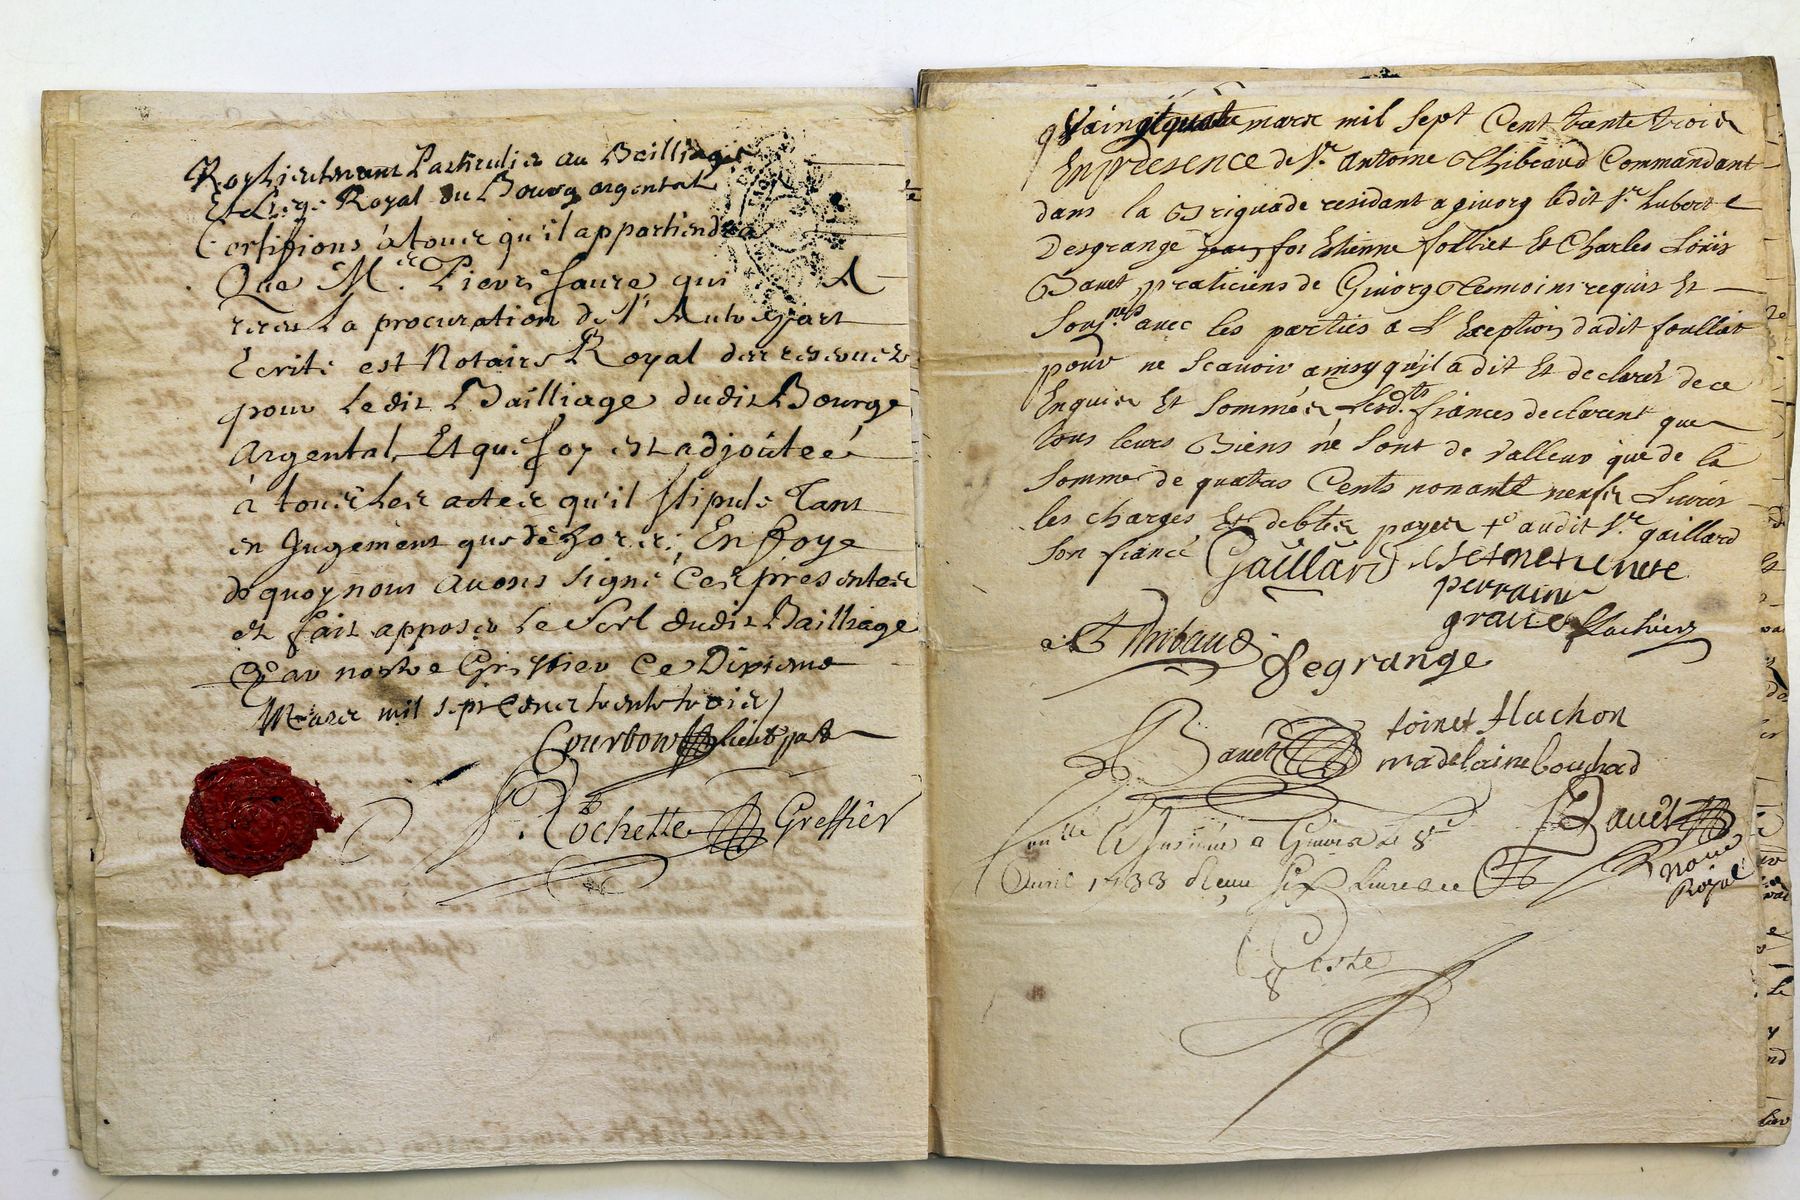 Roy Lieutenant Particulier au Bailliage
Et Siege Royal du Bourg argental
Certifions à tous qu'il appartiendra
Que Mr. Pierre faure qui A
receu La procuration de l'Autre part
Ecrite est Notaire Royal des reservés
pour Ledit Bailliage dudit Bourg
Argental, Et que foy est adjoûteé
à tous Les actes qu'il stipule Tant
en Jugement que dehors; En foye
de quoy nous avons signé Ces presentes
et fait apposer Le Scel dudit Bailliage
Par nostre Greffier Ce Dixieme
Mars mil sept Cent trente trois
Courbon lieut part
Rochette Greffier
vaingtquatre mars mil sept Cent trante trois
En presence de Sr. antoine Thibeaud Commandant
dans la Briguade residant a givors ledit Sr. hubert
Desgrange Etienne folliet Et Charles Loüis
Bavet praticiens de Givors Temoins requis Et
Sousnés avec les parties a L'Exeption dudit foulliet
pour ne scavoir ainsy qu'il a dit Et declaré de ce
Enquis Et sommés Lesdts. fiancés declarent que
tous leurs Biens ne sont de valleur que de la
somme de quatres Cents nonante neufs Livres
les charges Et debtes payes audit Sr. gaillard
son fiancé Gaillard
perrain
grauce flachier
Thibaud Degrange
Bavet toinet fluchon
madelaine bouchad
Bavet
Nore
Royal
a Givors le 8e
Avril 1733 Receu six Livres
Coste